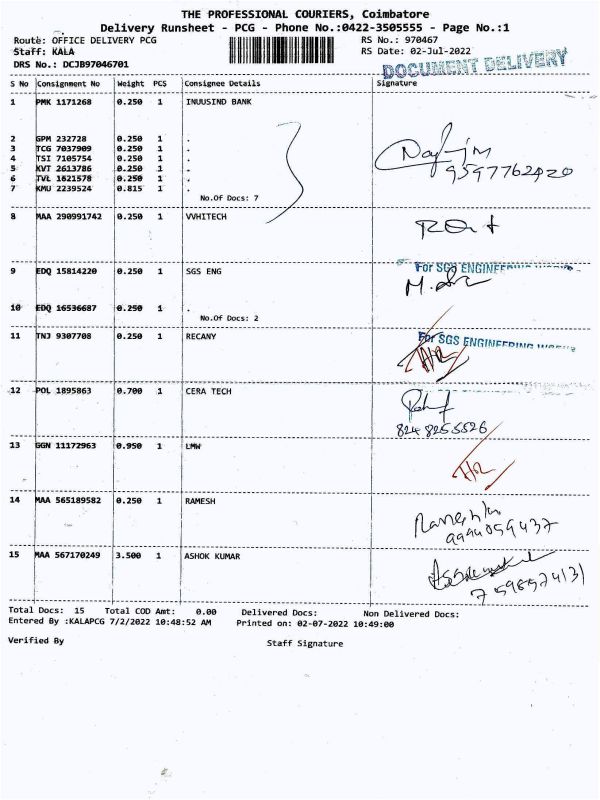 THE PROFESSIONAL COURIERS, Coimbatore
Delivery Runsheet - PCG - Phone No.:0422-3505555 - Page No.:1
Route: OFFICE DELIVERY PCG RS No.: 970467
Staff: KALA RS Date: 02-Jul-2022
DRS No.: DCJB97046701 DOCUMENT DELIVERY
S No Consignment No Weight PCS Consignee Details Signature
1 PMK 1171268 0.250 1 INUUSIND BANK
2 GPM 232728 0.250 1 .
3 TCG 7037909 0.250 1 .
4 TSI 7105754 0.250 1 .
5 KVT 2613786 0.250 1 .
6 TVL 1621578 0.250 1 .
7 KMU 2239524 0.815 1 .
9597762420
No.Of Docs: 7
8 MAA 290991742 0.250 1 VVHITECH
9 EDQ 15814220 0.250 1 SGS ENG For SGS ENGINEERING
10 EDQ 16536687 0.250 1 .
No.Of Docs: 2
11 TNJ 9307708 0.250 1 RECANY For SGS ENGINEERING WORKS
12 POL 1895863 0.700 1 CERA TECH
8248255526
13 GGN 11172963 0.950 1 LMW
14 MAA 565189582 0.250 1 RAMESH
9994059437
15 MAA 567170249 3.500 1 ASHOK KUMAR
7598574131
Total Docs: 15 Total COD Amt: 0.00 Delivered Docs: Non Delivered Docs:
Entered By :KALAPCG 7/2/2022 10:48:52 AM Printed on: 02-07-2022 10:49:00
Verified By Staff Signature